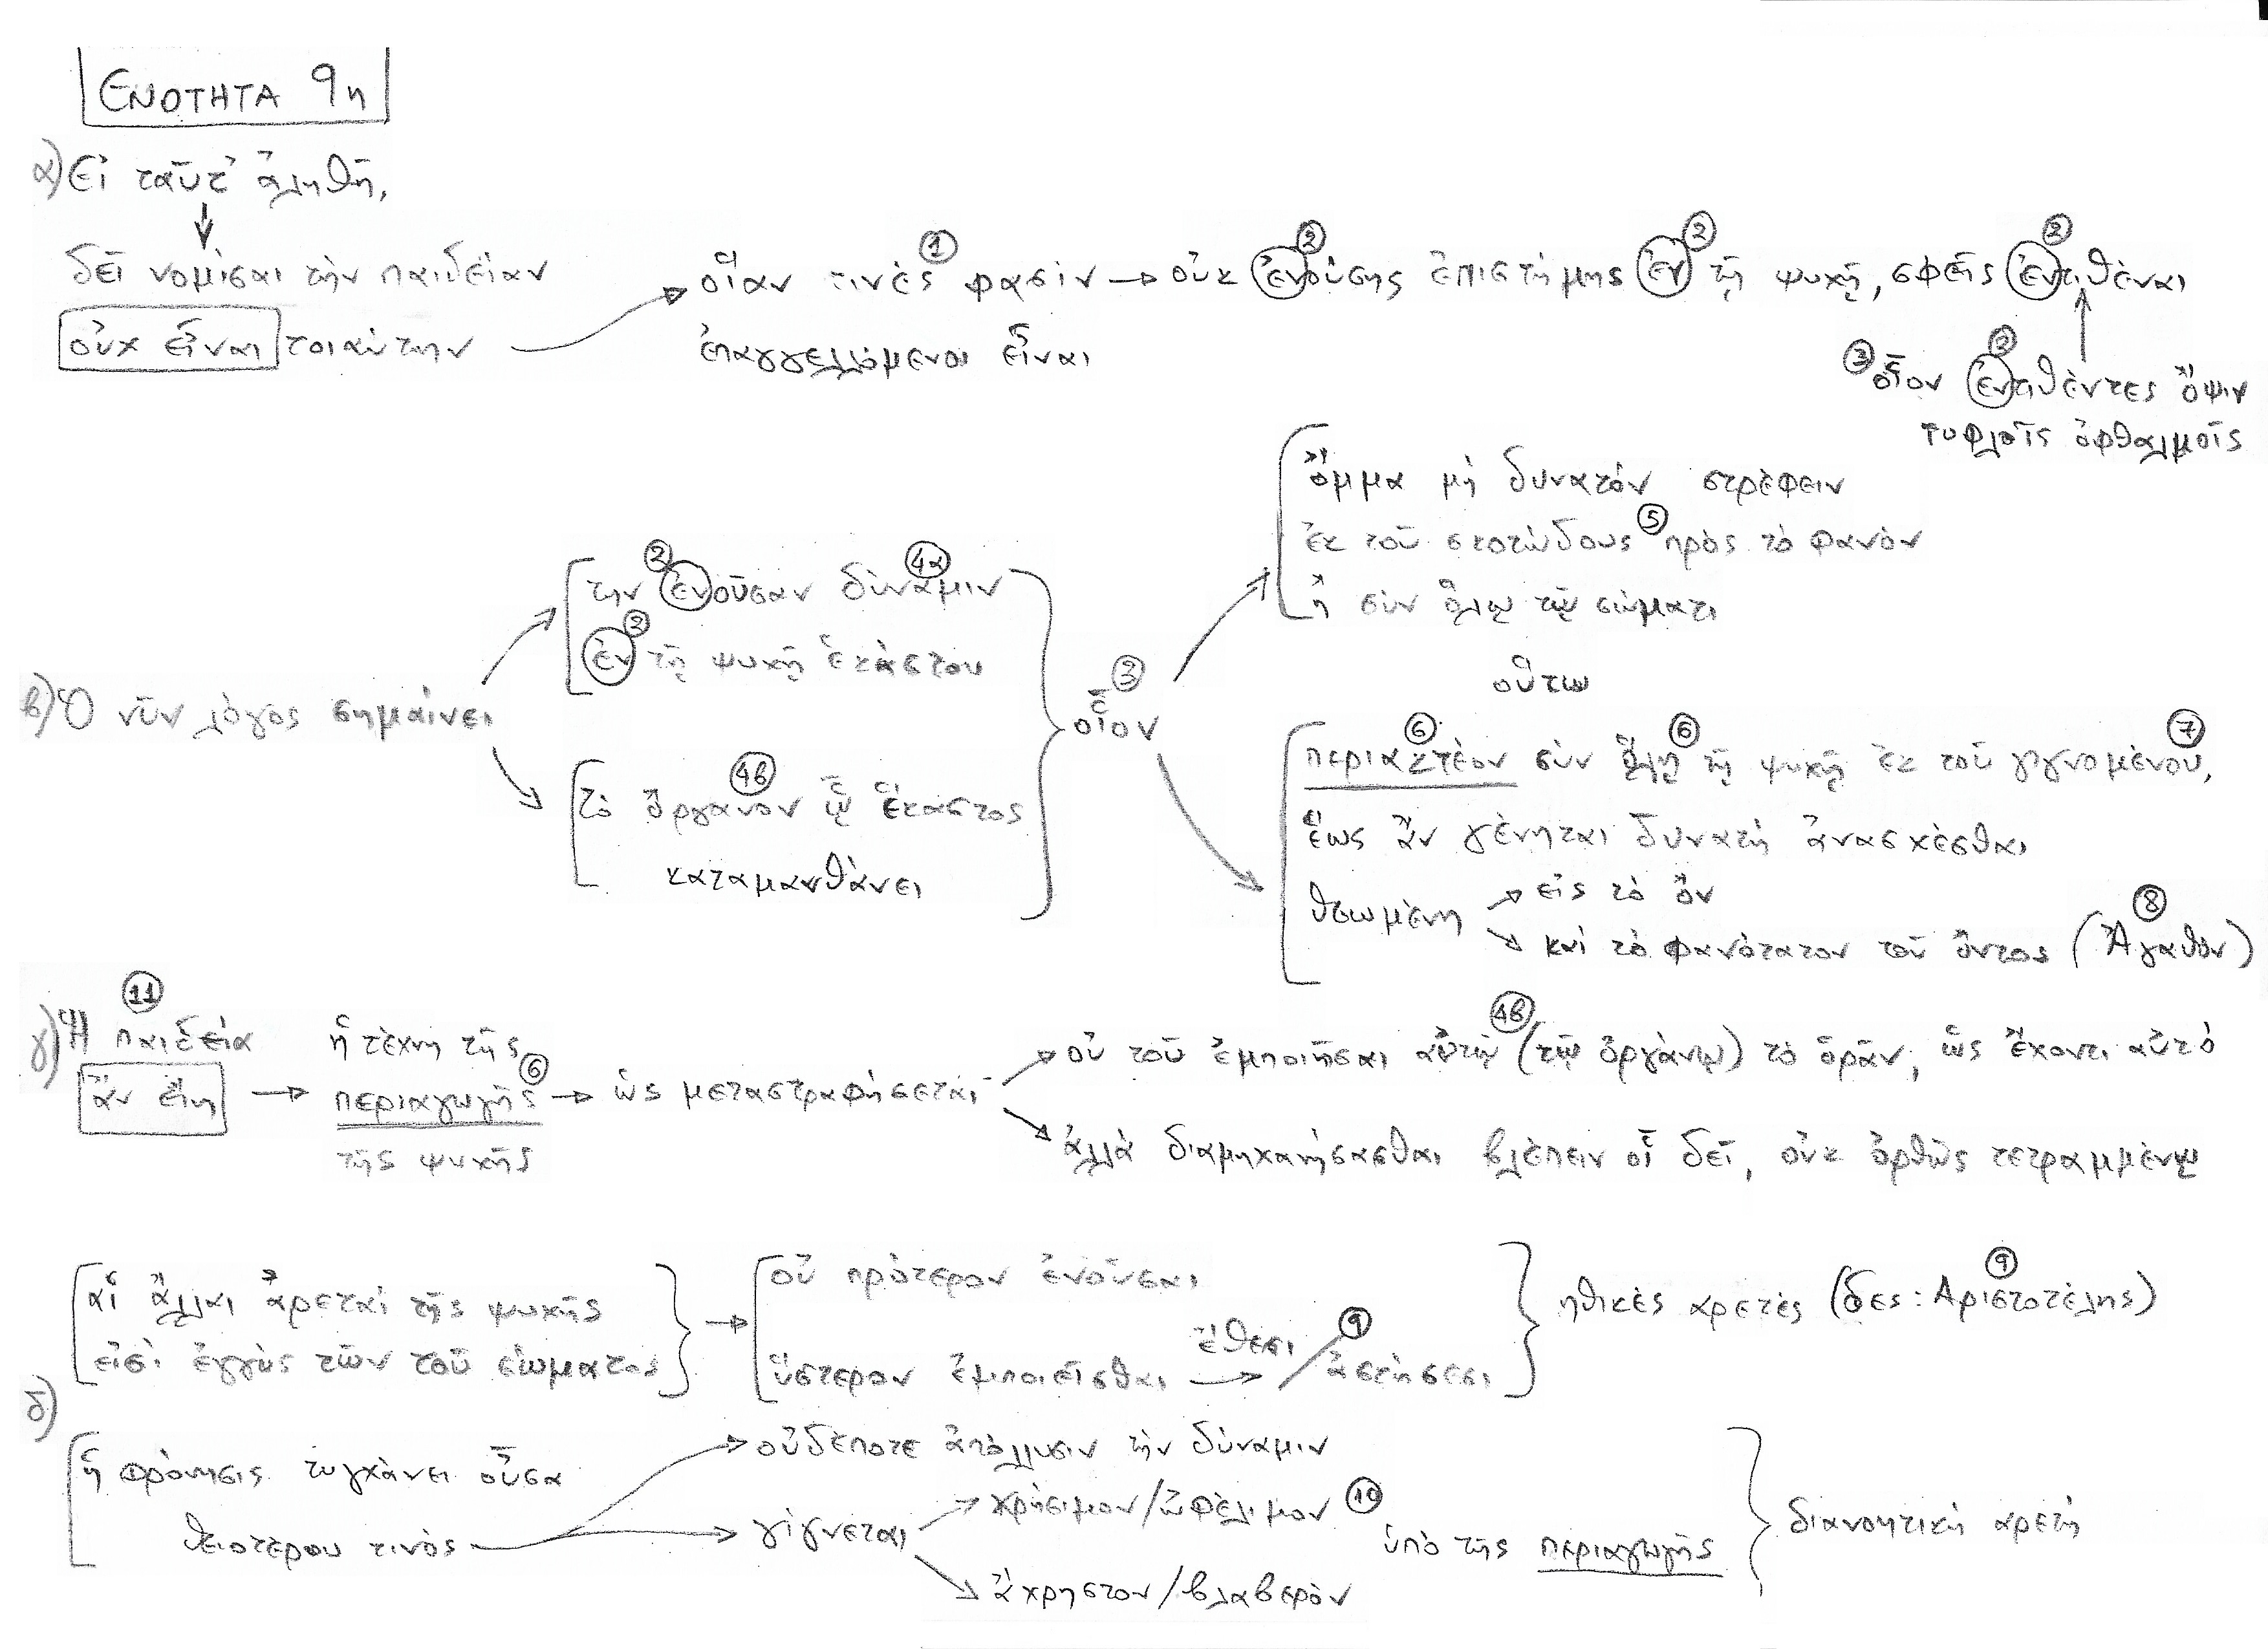 ΕΝΟΤΗΤΑ 9η
α) Εἰ ταῦτ' ἀληθῆ,
δεῖ νομίσαι τὴν παιδείαν
οὐχ εἶναι τοιαύτην
οἵαν τινὲς ① φασίν → οὐκ ἐνούσης ② ἐπιστήμης ἐν ② τῇ ψυχῇ, σφεῖς ἐντιθέναι ②
ἐπαγγελλόμενοι εἶναι
③ οἷον ἐντιθέντες ② ὄψιν
τυφλοῖς ὀφθαλμοῖς
β) Ὁ νῦν λόγος σημαίνει
τὴν ἐνοῦσαν ② δύναμιν ④α
ἐν ② τῇ ψυχῇ ἑκάστου
τὸ ὄργανον ④β ᾧ ἕκαστος
καταμανθάνει
οἷον ③
ὄμμα μὴ δυνατόν στρέφειν
ἐκ τοῦ σκοτώδους ⑤ πρὸς τὸ φανὸν
ἢ σὺν ὅλῳ τῷ σώματι
οὕτω
περιακτέον ⑥ σὺν ὅλῃ ⑥ τῇ ψυχῇ ἐκ τοῦ γιγνομένου ⑦,
ἕως ἂν γένηται δυνατὴ ἀνασχέσθαι
θεωμένη → εἰς τὸ ὂν
→ καὶ τὸ φανότατον τοῦ ὄντος (Ἀγαθόν) ⑧
γ) Ἡ παιδεία ⑪
ἂν εἴη
ἡ τέχνη τῆς
περιαγωγῆς ⑥ → ὡς μεταστραφήσεται
τῆς ψυχῆς
οὐ τοῦ ἐμποιῆσαι αὐτῷ ④β (τῷ ὀργάνῳ) τὸ ὁρᾶν, ὡς ἔχοντι αὐτό
ἀλλὰ διαμηχανήσασθαι βλέπειν οἷ δεῖ, οὐκ ὀρθῶς τετραμμένῳ
δ)
αἱ ἄλλαι ἀρεταὶ τῆς ψυχῆς
εἰσὶ ἐγγὺς τῶν τοῦ σώματος
οὐ πρότερον ἐνοῦσαι
ὕστερον ἐμποιεῖσθαι → ἔθεσι / ἀσκήσεσι ⑨
ηθικές αρετές (δες: Αριστοτέλης) ⑨
ἡ φρόνησις τυγχάνει οὖσα
θειοτέρου τινὸς
οὐδέποτε ἀπόλλυσιν τὴν δύναμιν
γίγνεται
χρήσιμον/ὠφέλιμον ⑩
ὑπὸ τῆς περιαγωγῆς
ἄχρηστον/βλαβερὸν
διανοητική αρετή